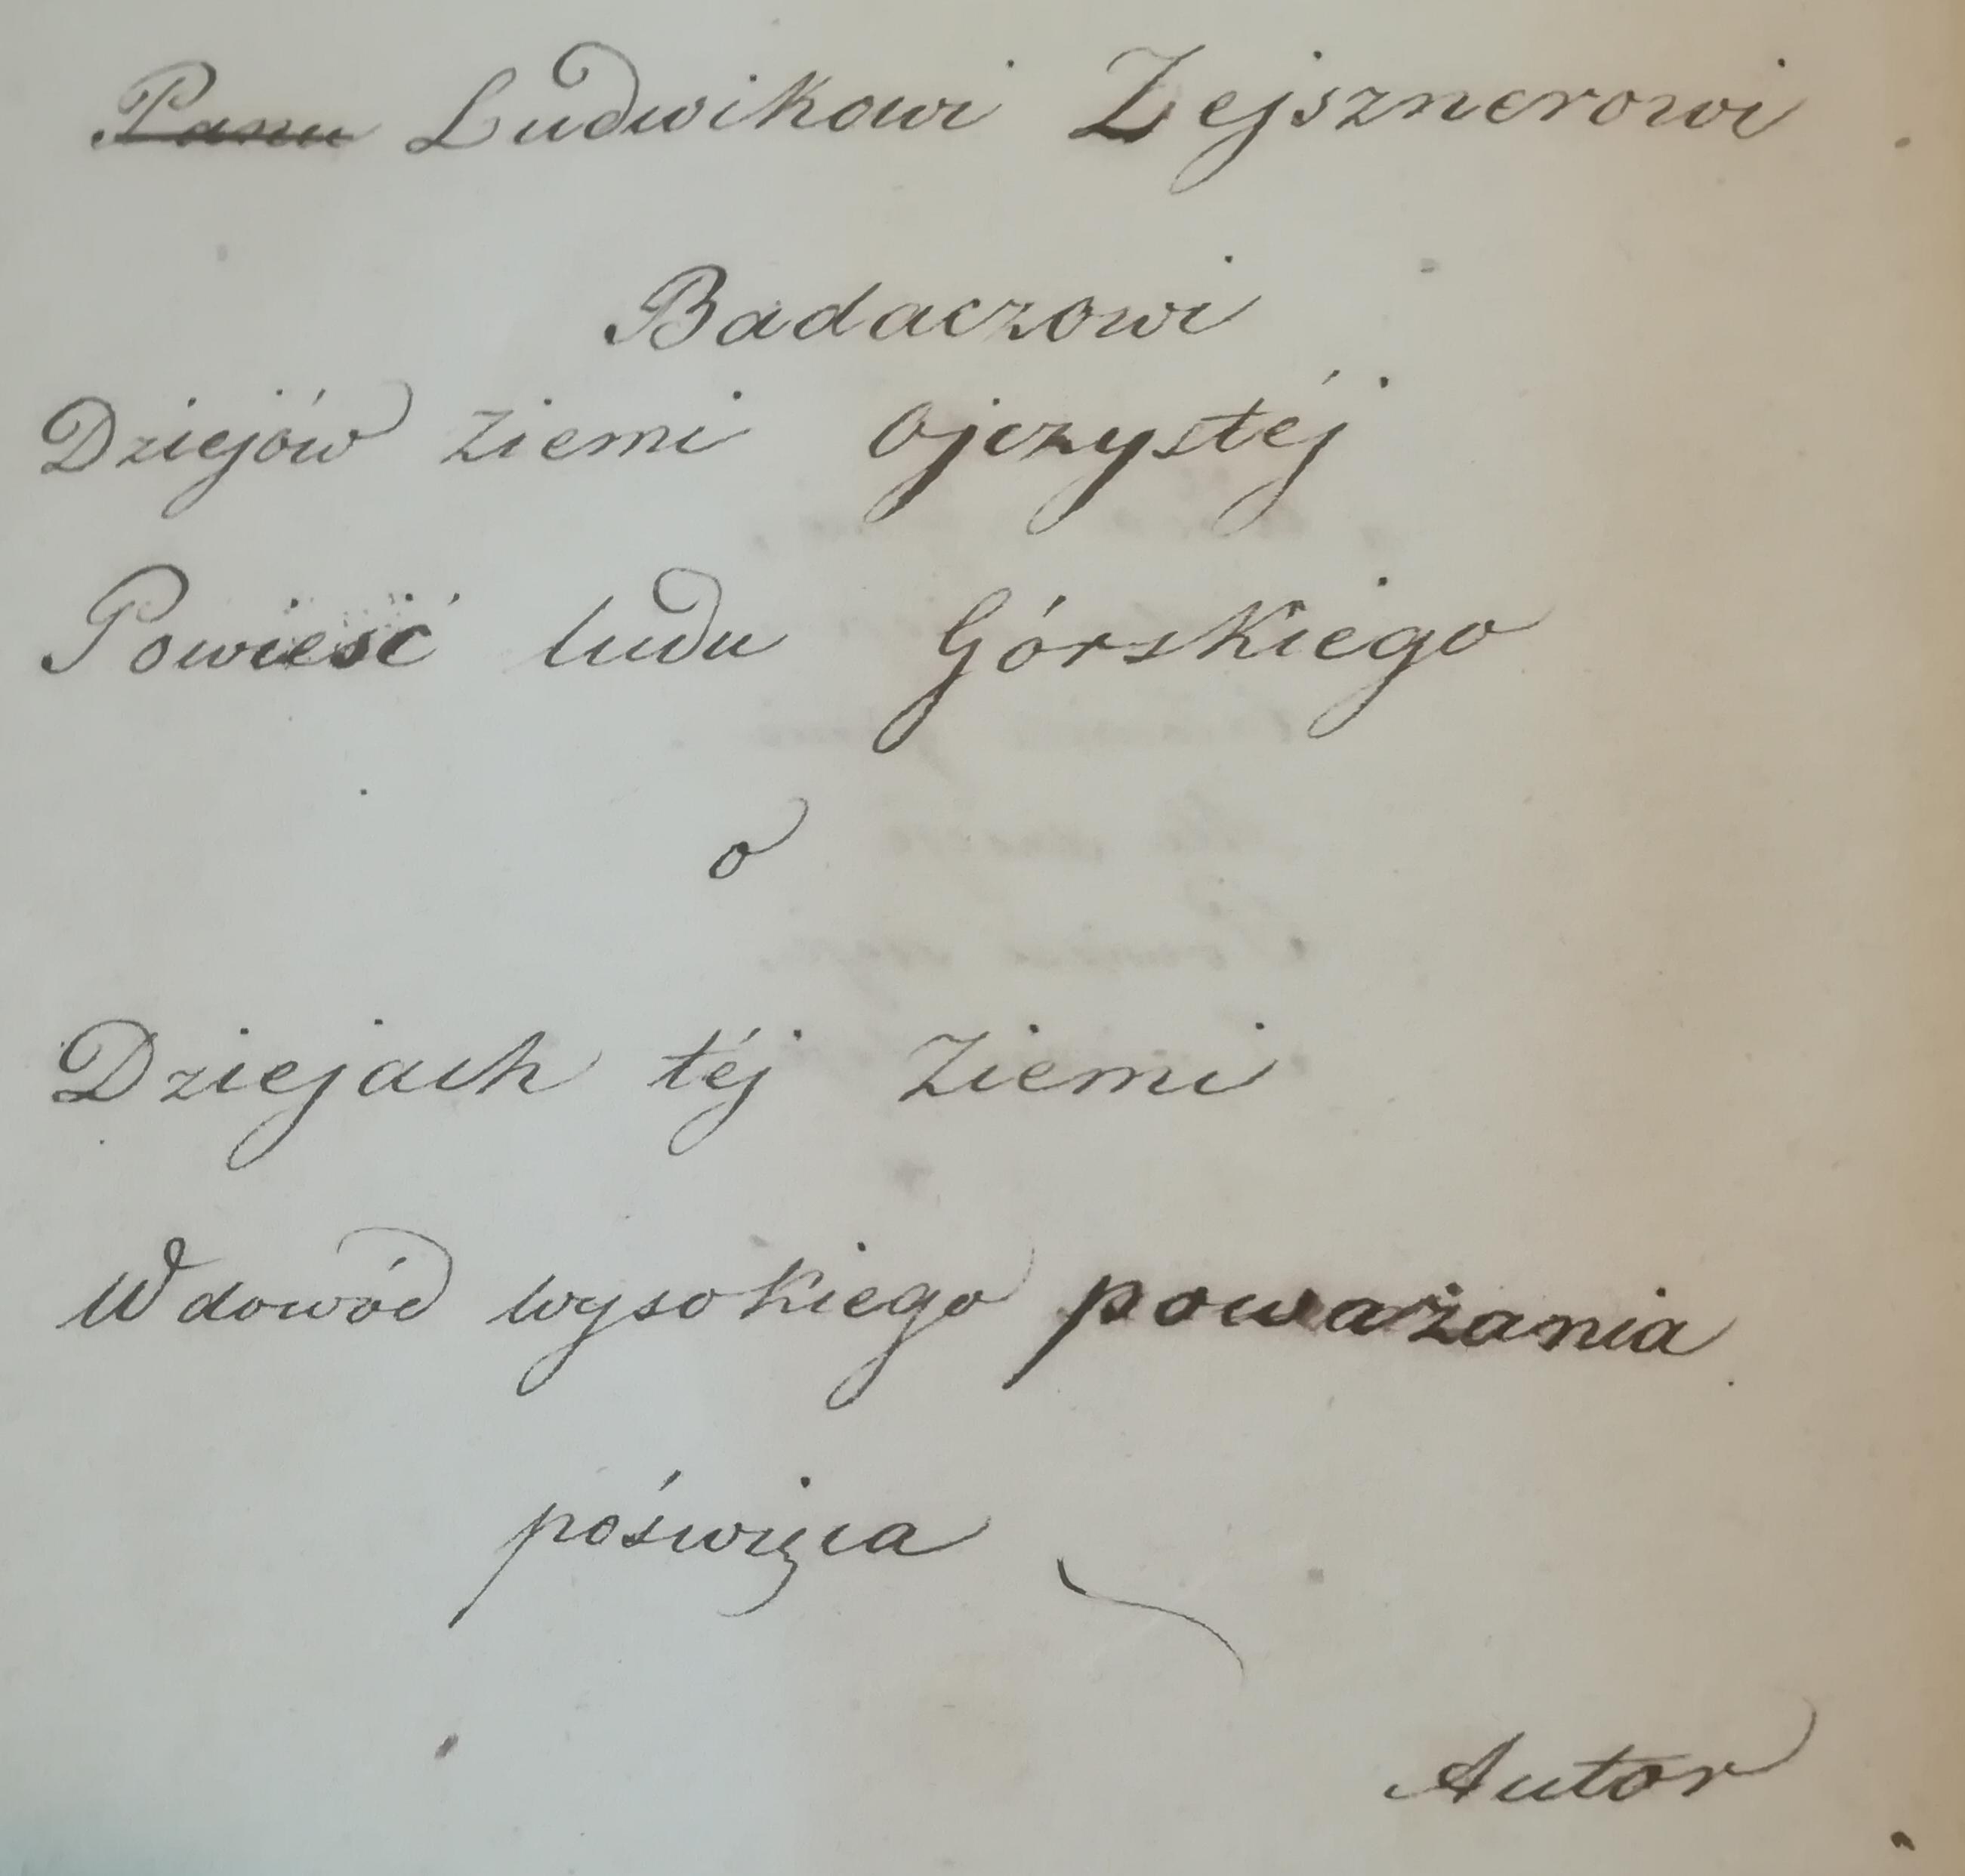 Panu Ludwikowi Zejsznerowi
Badaczowi
Dziejów Ziemi Ojczystéj
Powieść ludu Górskiego
o
Dziejach téj Ziemi
W dowód wysokiego poważania
poświęca
Autor